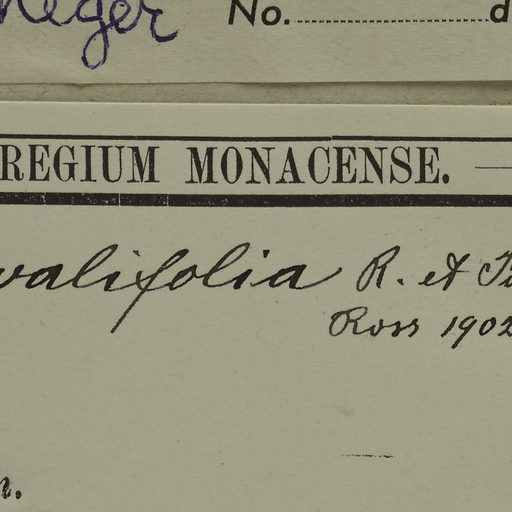 No. d
REGIUM MONACENSE.
valifolia R. et
Ross 1902
n.